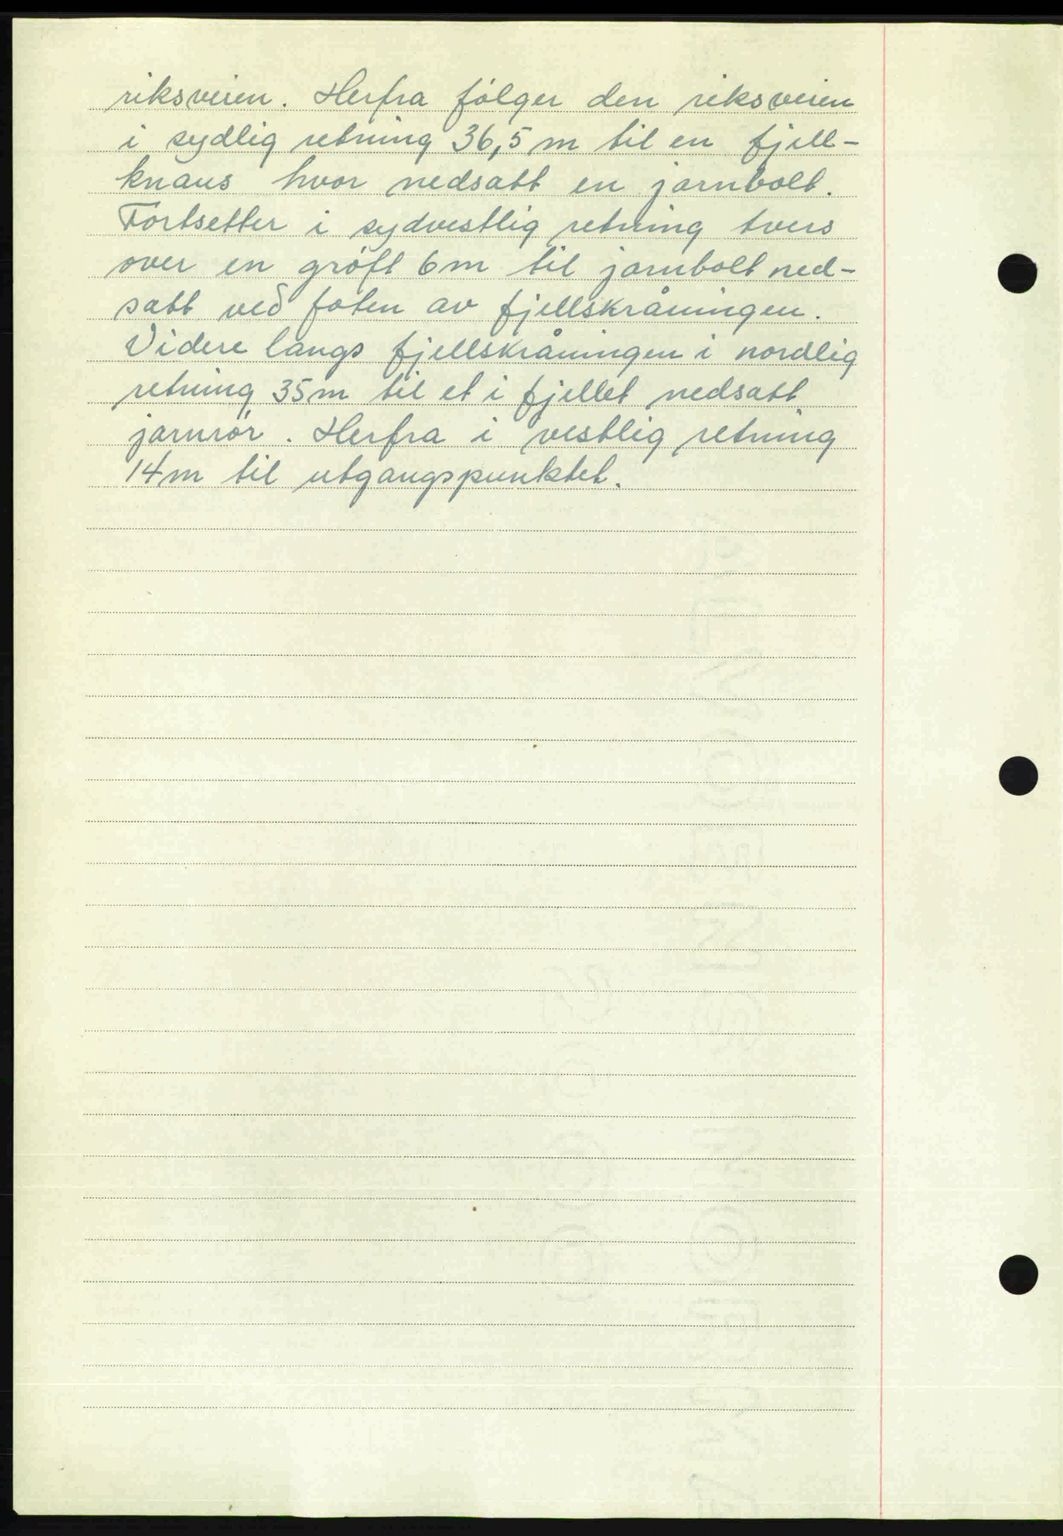 riksveien. Herfra følger den riksveien
i sydlig retning 36,5 m til en fjell-
knaus hvor nedsatt en jarnbolt.
Fortsetter i sydvestlig retning tvers
over en grøft 6 m til jarnbolt ned-
satt ved foten av fjellskråningen.
Videre langs fjellskråningen i nordlig
retning 35 m til et i fjellet nedsatt
jarnrør. Herfra i vestlig retning
14 m til utgangspunktet.